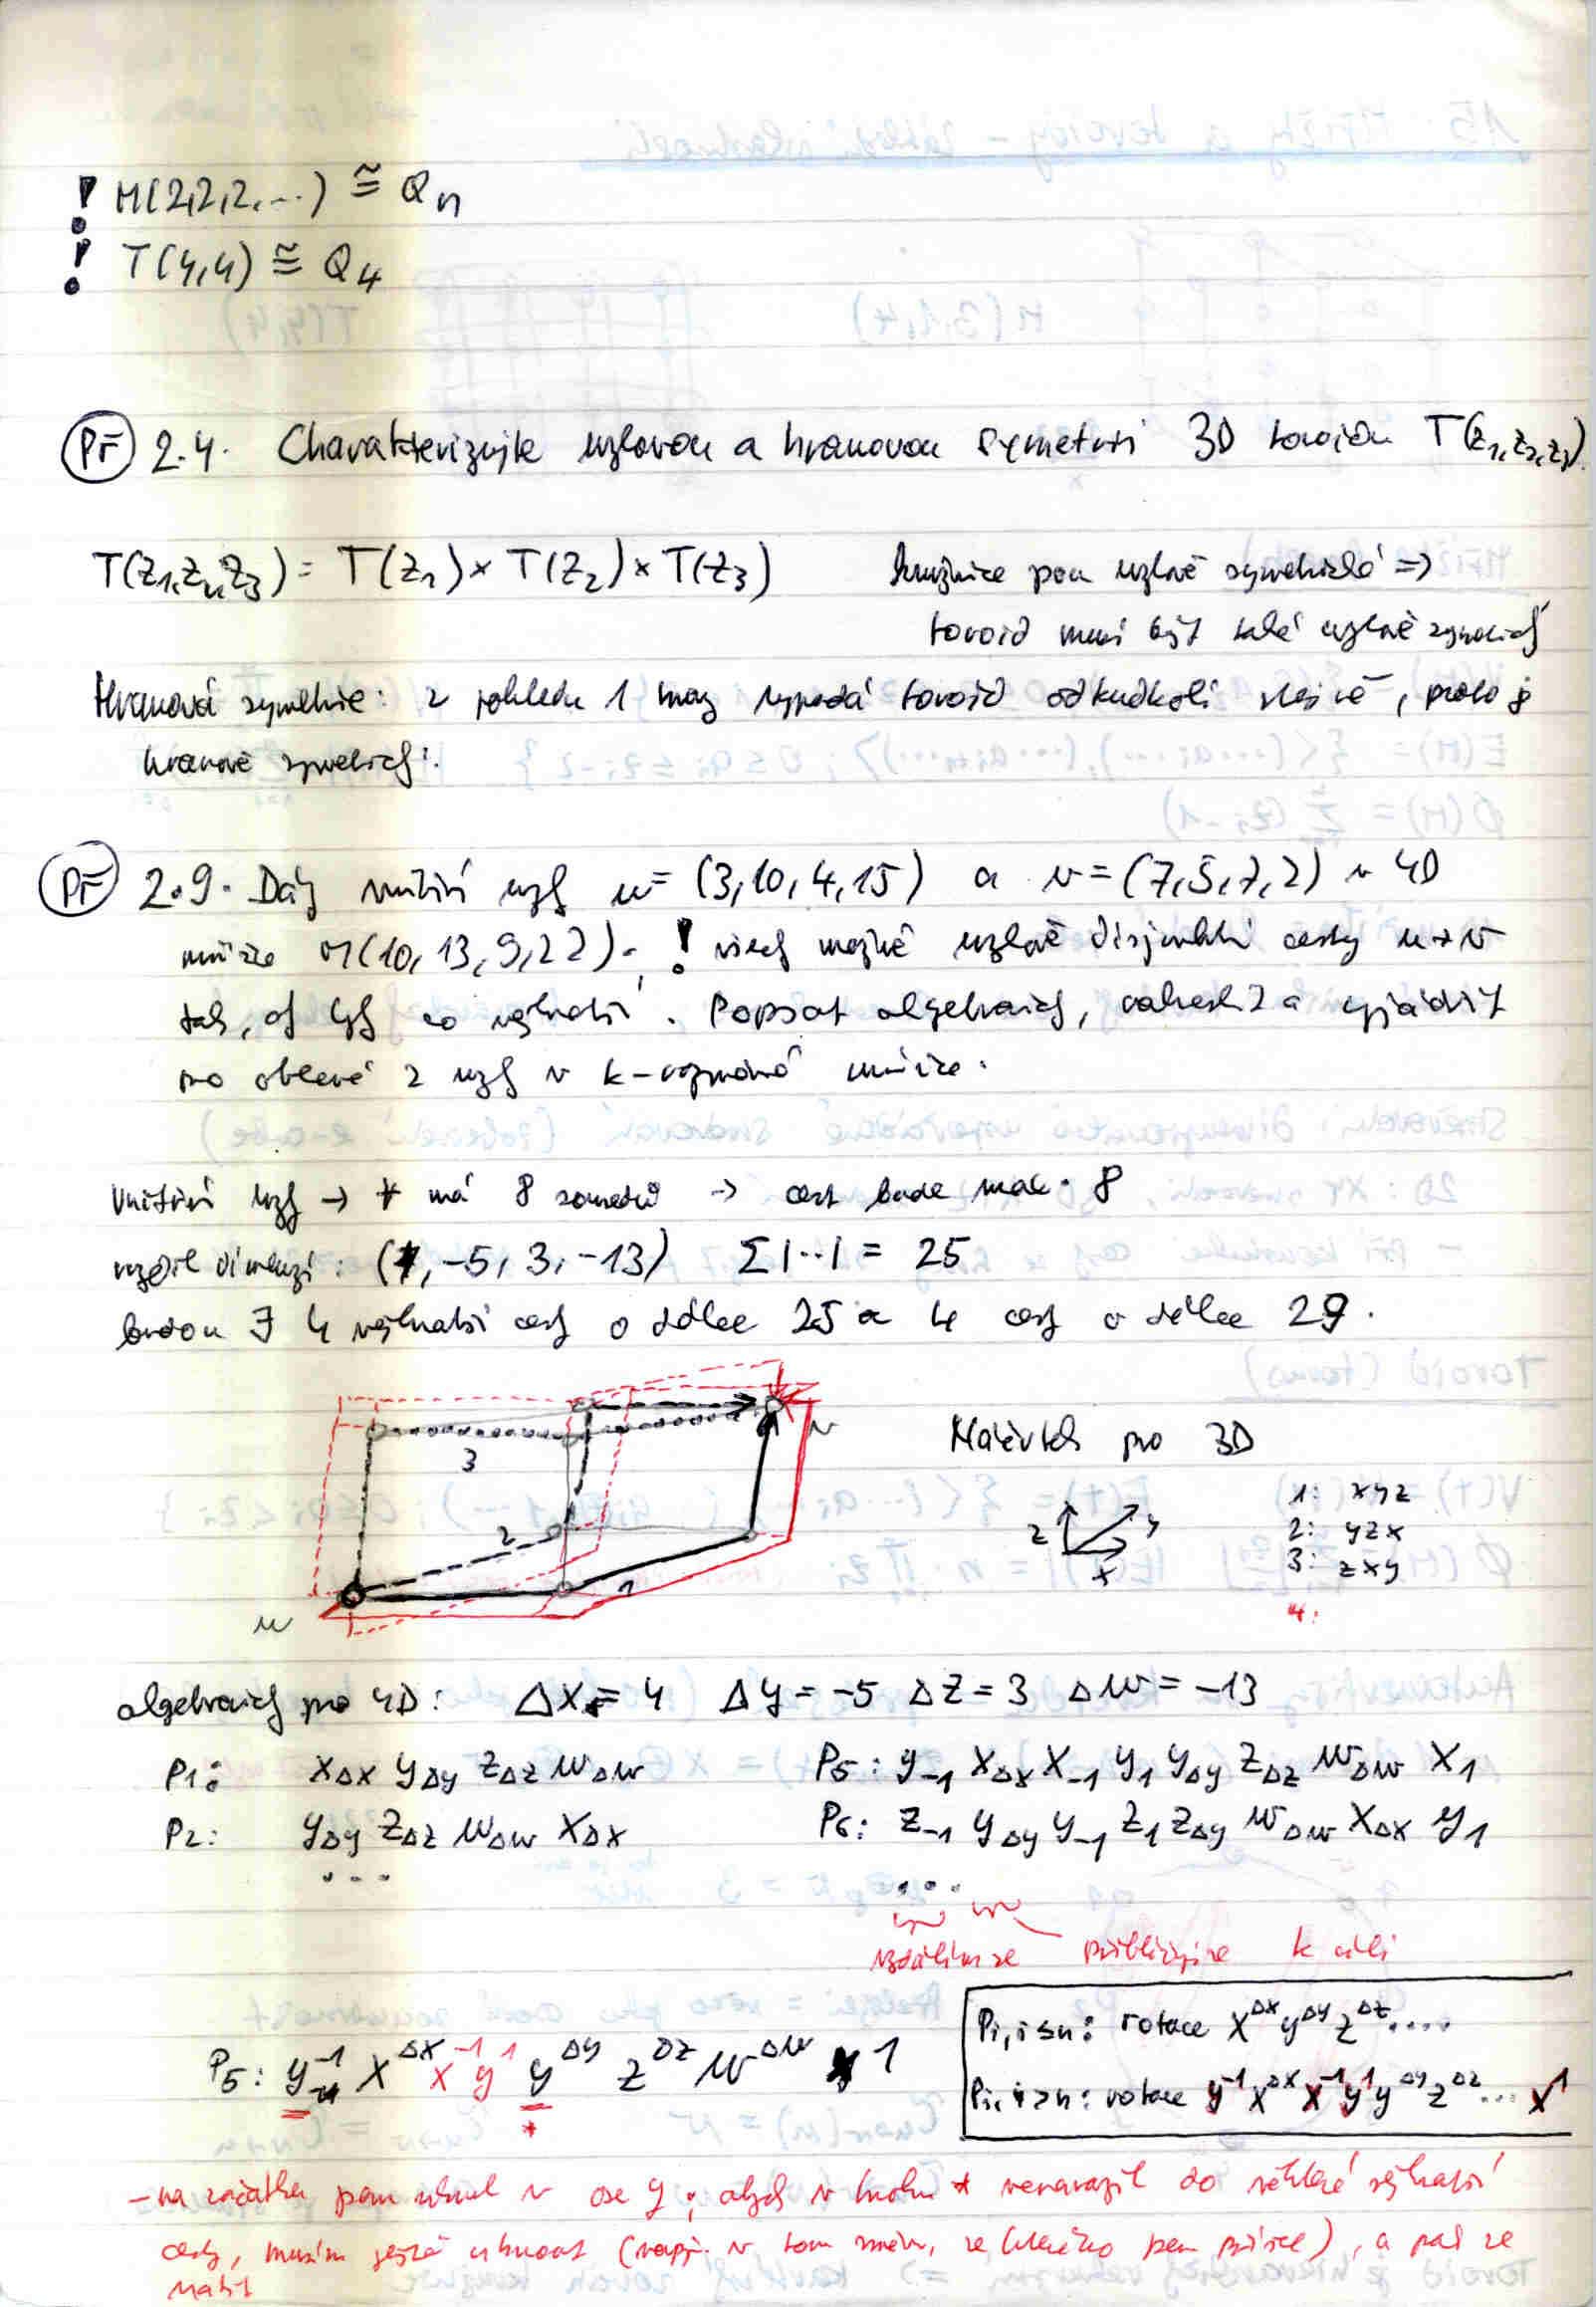 ! M(2,2,2,...) ≅ Qn
! T(4,4) ≅ Q4
Př 2.4. Charakterizujte uzlovou a hranovou symetrii 3D toroidu T(z1,z2,z3).
T(z1,z2,z3) = T(z1) × T(z2) × T(z3) kružnice jsou uzlově symetrické =>
toroid musí být také uzlově symetrický
Hranová symetrie: z pohledu 1 hrany vypadá toroid odkudkoli stejně, proto je
hranově symetrický.
Př 2.9. Dány vnitřní uzly u = (3,10,4,15) a v = (7,5,7,2) v 4D
mřížce M(10,13,9,22). ! všechny možné uzlově disjunktní cesty u → v
tak, ať byly co nejkratší. Popsat algebraicky, nakreslit a vyjádřit
pro obecné 2 uzly v k-rozměrné mřížce.
Vnitřní uzly → má 8 sousedů → cest bude max. 8
rozdíl dimenzí: (4, -5, 3, -13) Σ|··| = 25
budou ∃ 4 nejkratší cesty o délce 25 a 4 cesty o délce 29.
3
2
1
u
v
Náčrtek pro 3D
z y x
1: xyz
2: yzx
3: zxy
4:
algebraicky pro 4D: Δx = 4 Δy = -5 Δz = 3 Δw = -13
P1: xΔx yΔy zΔz wΔw P5: y-1 xΔx x-1 y1 yΔy zΔz wΔw x1
P2: yΔy zΔz wΔw xΔx P6: z-1 yΔy y-1 z1 zΔy wΔw xΔx y1
... ...
vzdálíme se přibližujeme k cíli
Pi, i≤n: rotace x^Δx y^Δy z^Δz ....
P5: y^-1 x^Δx x^-1 y^1 y^Δy z^Δz w^Δw x 1
Pi, i>n: rotace y^-1 x^Δx x^-1 y^1 y^Δy z^Δz ... x^1
*
- na začátku jsem uhnul v ose y; abych v kroku * nenarazil do některé nejkratší
cesty, musím ještě uhnout (např. v tom směru, ze kterého jsem přišel), a pak se
vrátit